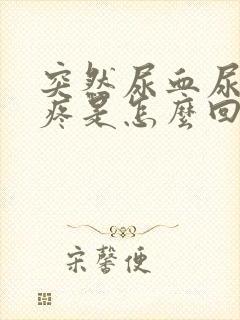 突然尿血尿
疼是怎麼回
宋馨便